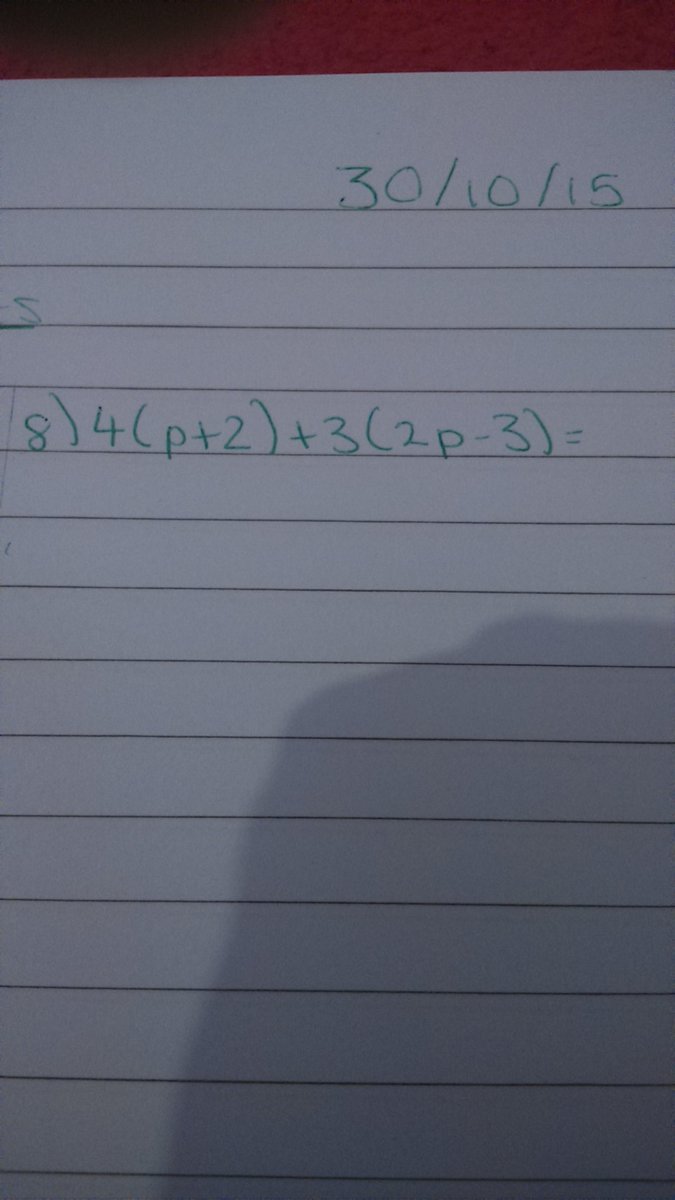 30/10/15
8) 4(p+2)+3(2p-3)=